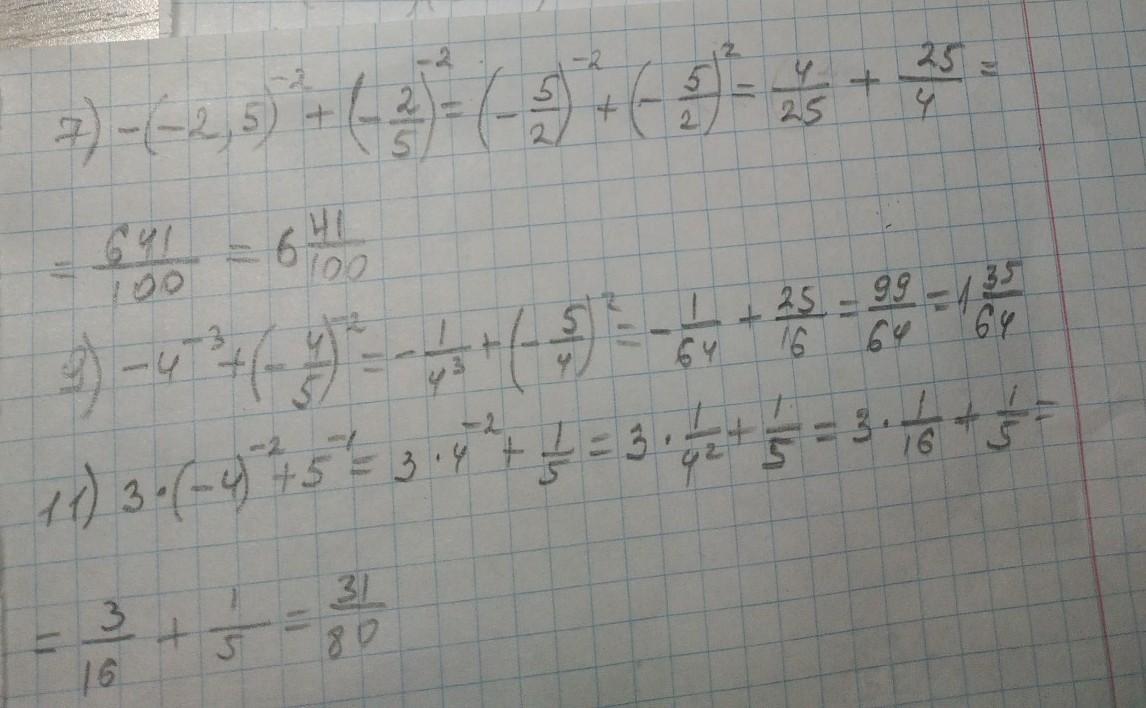 7) -(-2,5)^{-2} + (-\frac{2}{5})^{-2} = (-\frac{5}{2})^{-2} + (-\frac{5}{2})^{2} = \frac{4}{25} + \frac{25}{4} =
= \frac{641}{100} = 6\frac{41}{100}
9) -4^{-3} + (-\frac{4}{5})^{-2} = -\frac{1}{4^3} + (-\frac{5}{4})^{2} = -\frac{1}{64} + \frac{25}{16} = \frac{99}{64} = 1\frac{35}{64}
11) 3·(-4)^{-2} + 5^{-1} = 3·4^{-2} + \frac{1}{5} = 3·\frac{1}{4^2} + \frac{1}{5} = 3·\frac{1}{16} + \frac{1}{5} =
= \frac{3}{16} + \frac{1}{5} = \frac{31}{80}